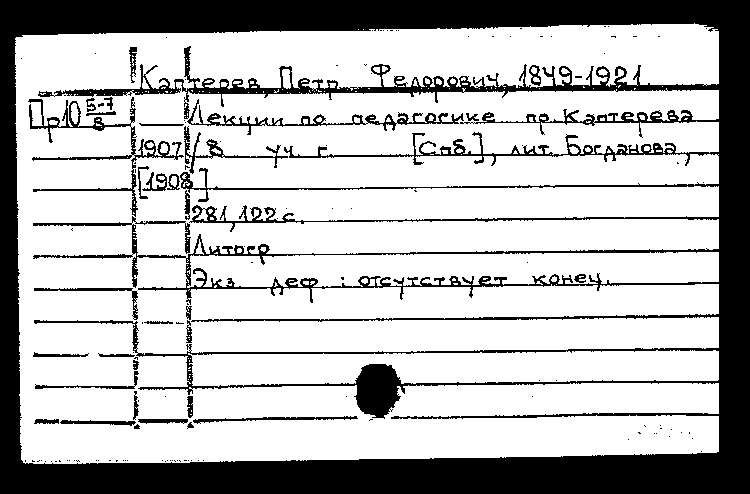 Каптерев, Петр Федорович, 1849-1921.
Пр10 5-7/8 Лекции по педагогике пр. Каптерева
1907/8 уч. г. [Спб.], лит. Богданова,
[1908].
281, 122 с.
Литогр
Экз. деф : отсутствует конец.